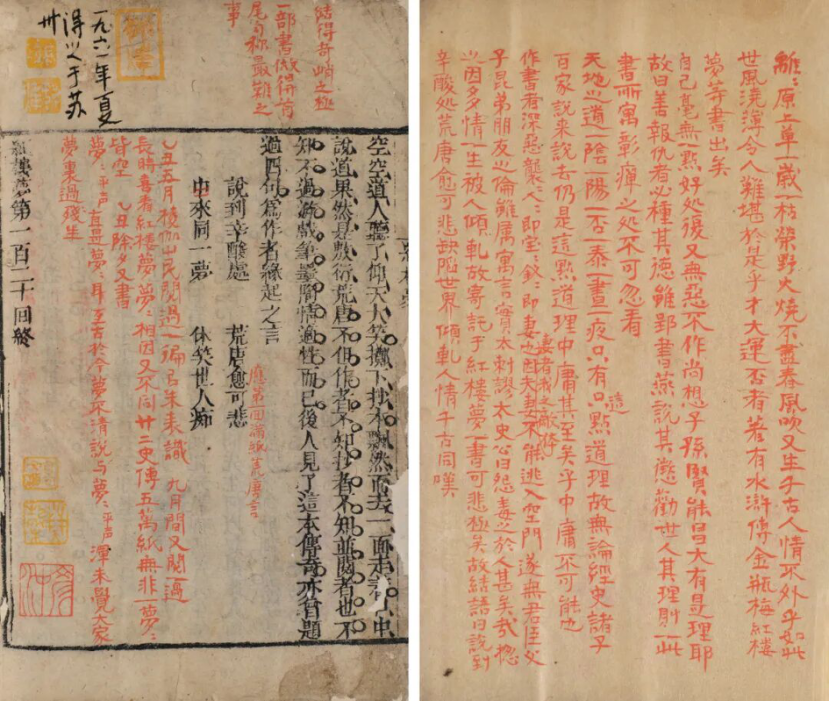 離:原上草一歲一枯榮野火燒不盡春風吹又生千古人情不外乎如此
世風澆薄令人難堪於是乎才大運否者著有水滸傳金瓶梅紅樓
夢等書出矣
自己毫無一點好処復又無惡不作尚想子孫賢能昌大有是理耶
故曰善報仇者必種其德雖郢書燕說其懲勸世人其理則一此
書所寓彰癉之処不可忽看
天地之道一陰一陽一否一泰一晝一夜只:有這點道理故無論經史諸子
百家說來說去仍是這點道理中庸其至矣乎中庸不可能也
妻者我之敵
作書者深惡襲:人:即宝:釵:即妻也因夫妻不能逃入空門遂無君臣父
子昆弟朋友之倫雖屬寓言實本刺謬太史公曰怨毒之於人甚矣哉總
以因多情一生被人傾軋故寄託于紅樓夢一書可悲極矣故結語曰說到
辛酸処荒唐愈可悲缺陷世界傾軋人情千古同嘆
結得奇峭之極
一部書做得首
尾句称最難之
事
一九六一年夏
得之于苏
州
空空道人聽了仰天大笑擲下抄本飄然而去一面走一面口中
說道果然是敷衍荒唐不但作者不知抄者不知並閱者也不
知不過游戲筆墨陶情適性而已後人見了這本傳奇亦曾題
過四句爲作者緣起之言
說到辛酸處 荒唐愈可悲
應第一回滿紙荒唐言
由來同一夢 休笑世人痴
乙丑五月 出民間過一徧 朱表識 九月間又閱一過
長時喜看紅樓夢:夢:相因又不同廿二史傳五萬紙無非一夢:
皆空 乙丑除夕又書
夢:平声 直是夢:耳至古於今夢不清說与夢:平声 渾未覺大家
夢裏過殘生
紅樓夢第一百二十回終